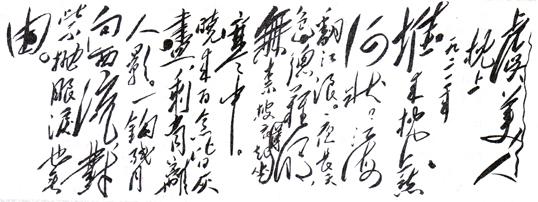 虞美人
枕上
一九二一年
堆来枕上愁
何状，江海
翻江浪。夜长天
色总难明，
無奈披衣起坐
寒中。
晓来百念皆灰
盡，剩有離
人影。一鈎残月
向西流，對
此不抛眼泪也無
由。